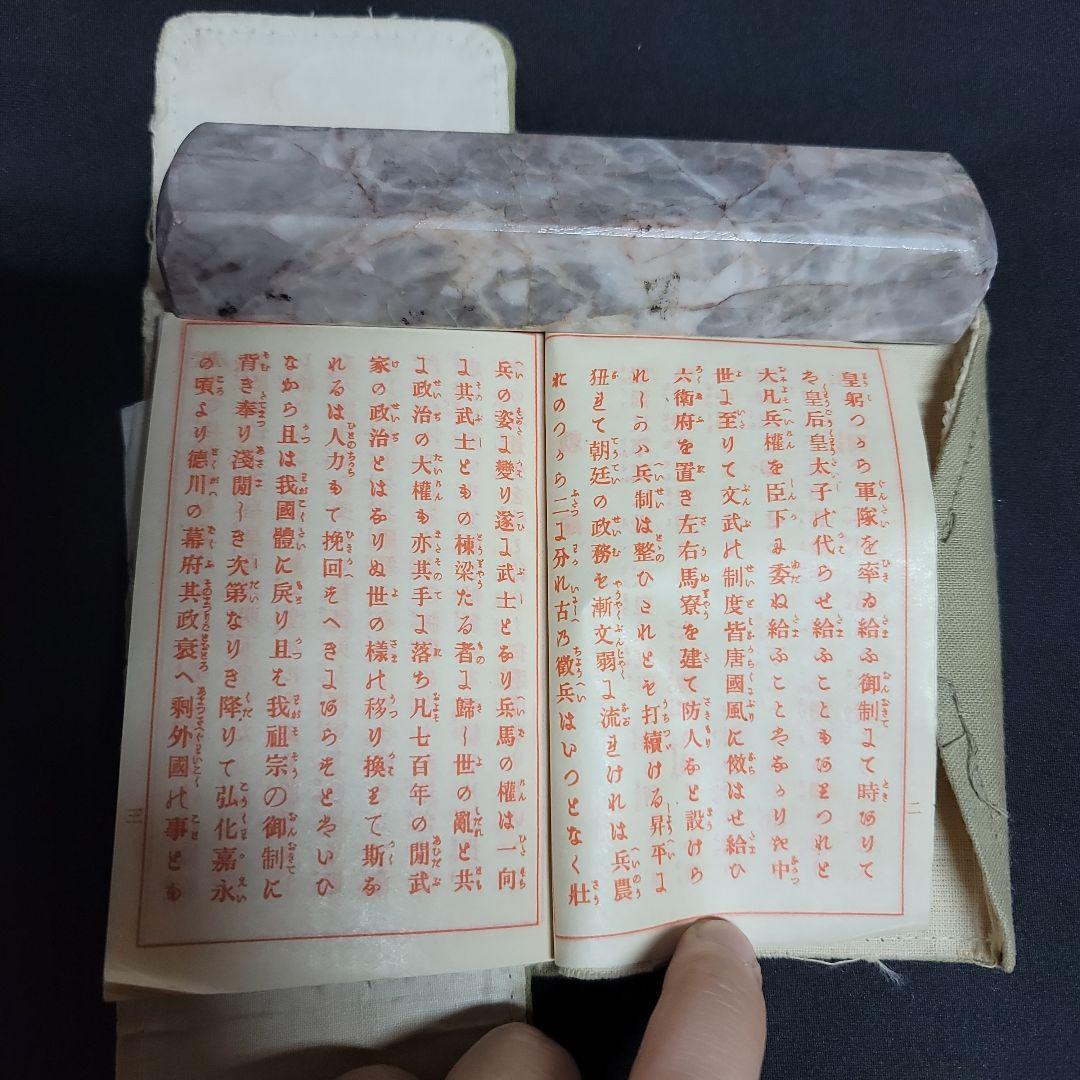 皇躬つから軍隊を率ゐ給ふ御制にて時ありて
は皇后皇太子の代らせ給ふこともありつれと
大凡兵權を臣下に委ね給ふことはなかりき中
世に至りて文武の制度皆唐國風に傚はせ給ひ
六衛府を置き左右馬寮を建て防人なと設けら
れしかは兵制は整ひたれとも打續ける昇平に
狃れて朝廷の政務も漸文弱に流れけれは兵農
おのつから二に分れ古の徴兵はいつとなく壯
二
兵の姿に變り遂に武士となり兵馬の權は一向
に其武士ともの棟梁たる者に歸し世の亂と共
に政治の大權も亦其手に落ち凡七百年の間武
家の政治とはなりぬ世の樣の移り換りて斯な
れるは人力もて挽回すへきにあらすとはいひ
なから且は我國體に戻り且は我祖宗の御制に
背き奉り淺間しき次第なりき降りて弘化嘉永
の頃より德川の幕府其政衰へ剩外國の事とも
三